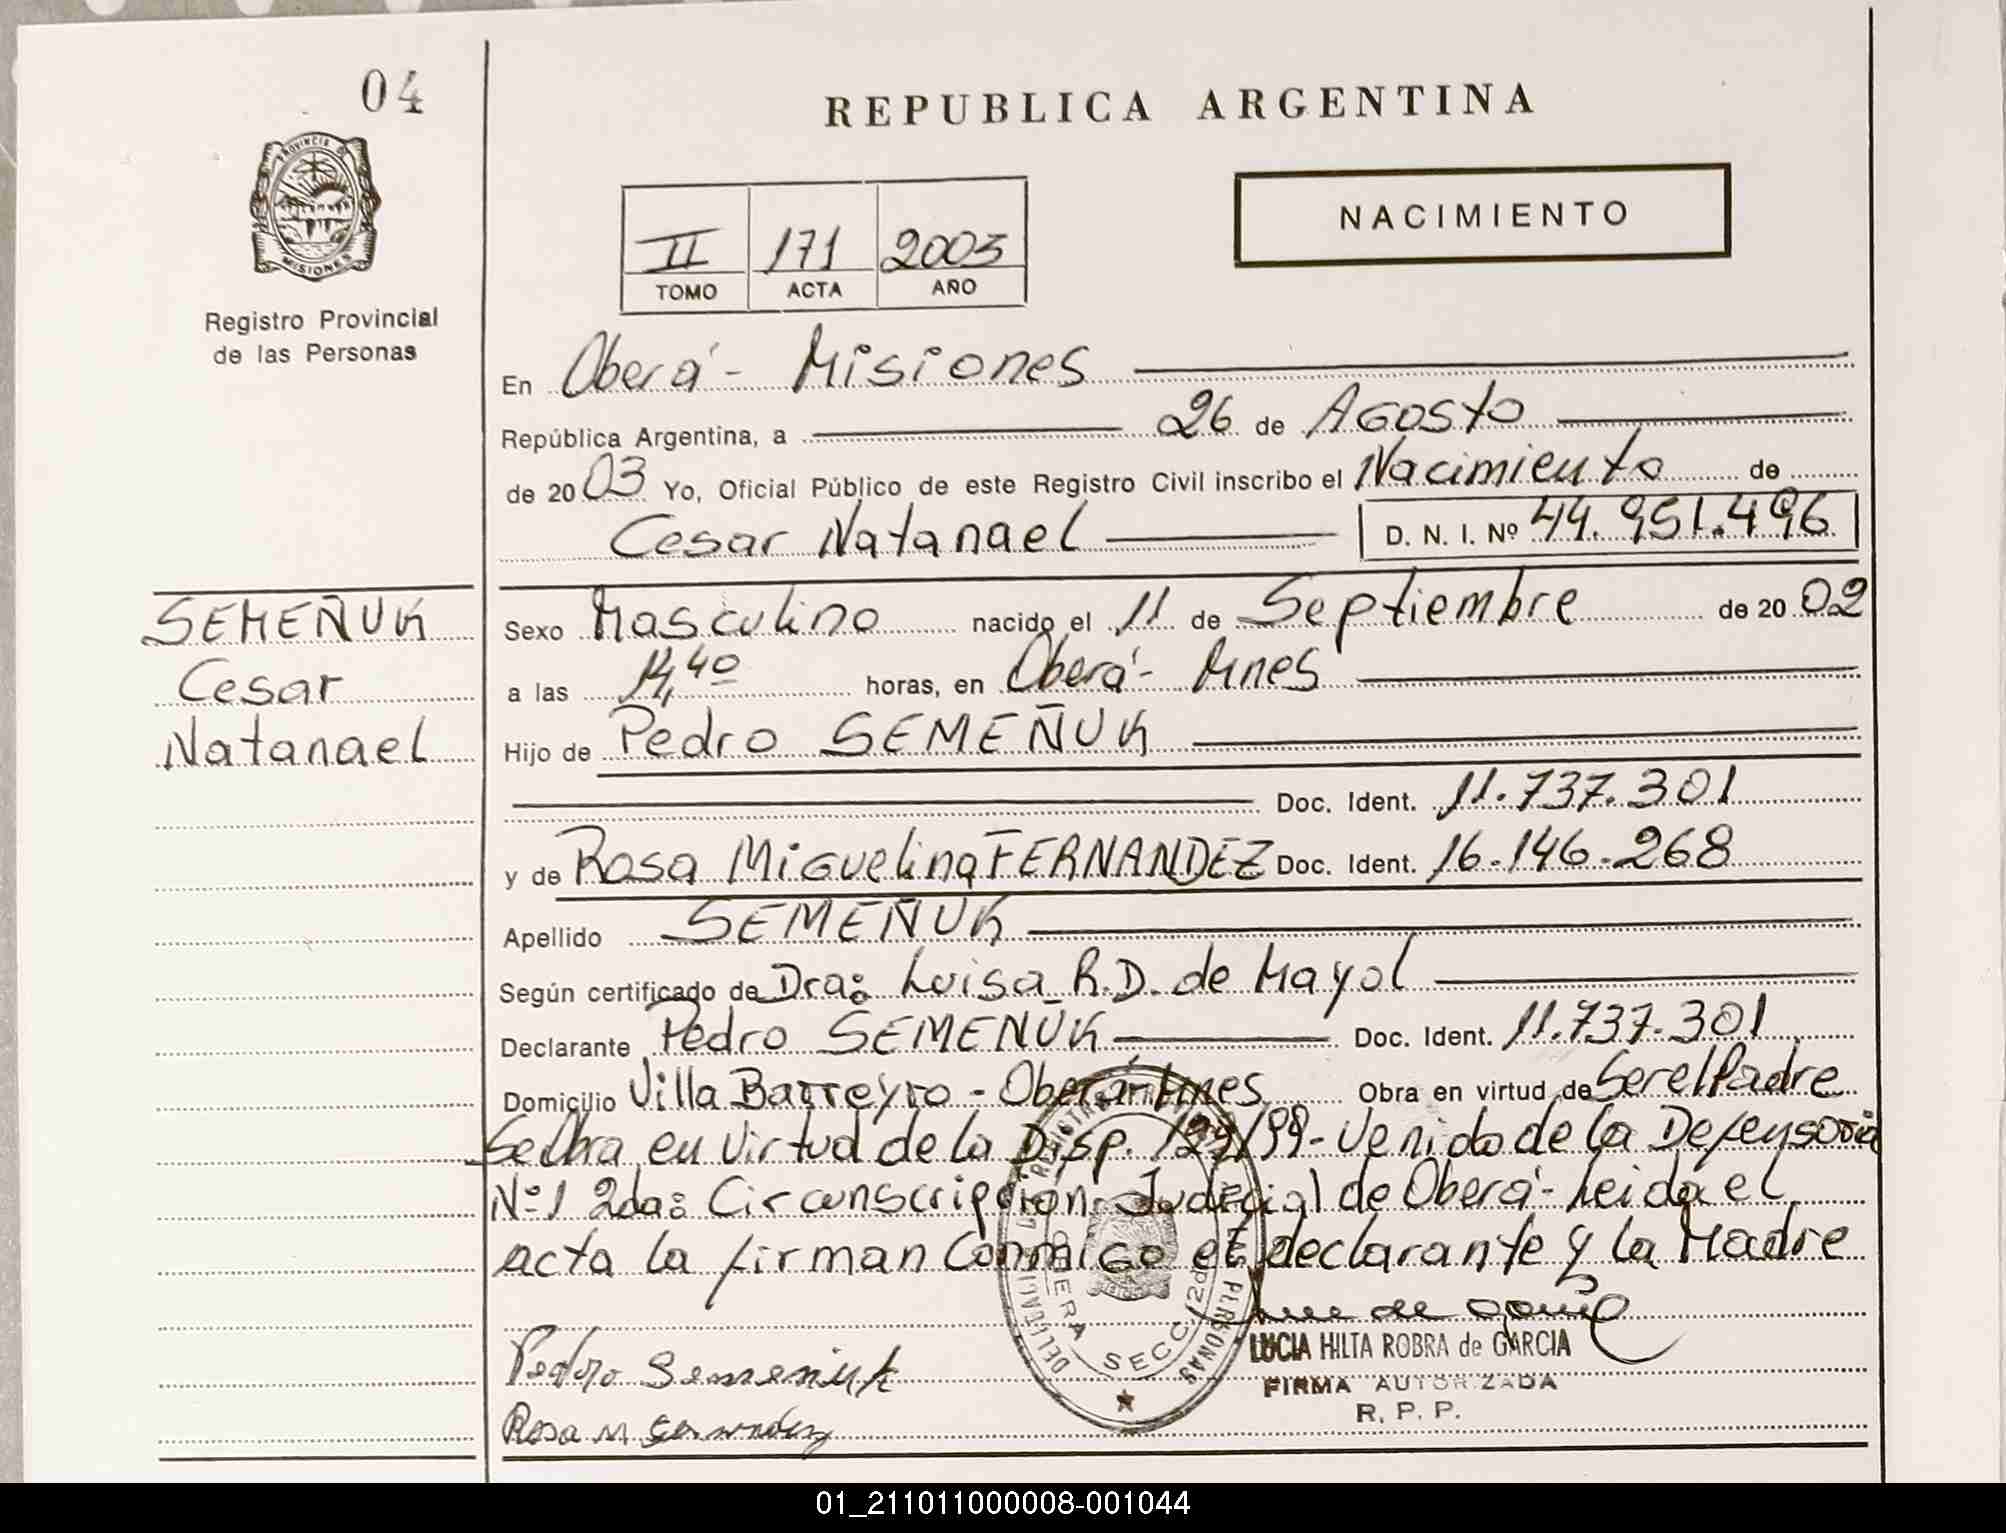 04
REPUBLICA ARGENTINA
PROVINCIA DE
MISIONES
Registro Provincial
de las Personas
NACIMIENTO
II 171 2003
TOMO ACTA AÑO
En Oberá - Misiones
República Argentina, a 26 de Agosto
de 2003 Yo, Oficial Público de este Registro Civil inscribo el Nacimiento de
Cesar Natanael D. N. I. Nº 44.951.496
SEMEÑUK
Cesar
Natanael
Sexo Masculino nacido el 11 de Septiembre de 2002
a las 14,40 horas, en Oberá - Mnes
Hijo de Pedro SEMEÑUK
Doc. Ident. 11.737.301
y de Rosa Miguelina FERNANDEZ Doc. Ident. 16.146.268
Apellido SEMEÑUK
Según certificado de Dra: Luisa R.D. de Mayol
Declarante Pedro SEMEÑUK Doc. Ident. 11.737.301
Domicilio Villa Barreyro - Oberá - Mnes Obra en virtud de Ser el Padre
Se Obra en virtud de la Disp. /99 - Venido de la Defensoria
Nº1 2da: Circunscripción Judicial de Oberá - Leida el
acta la firman Conmigo el declarante y la Madre
LUCIA HILTA ROBRA de GARCIA
FIRMA AUTORIZADA
R. P. P.
Pedro Semeniuk
Rosa M Fernandez
SECC. 2da
PERSONAS
01_211011000008-001044